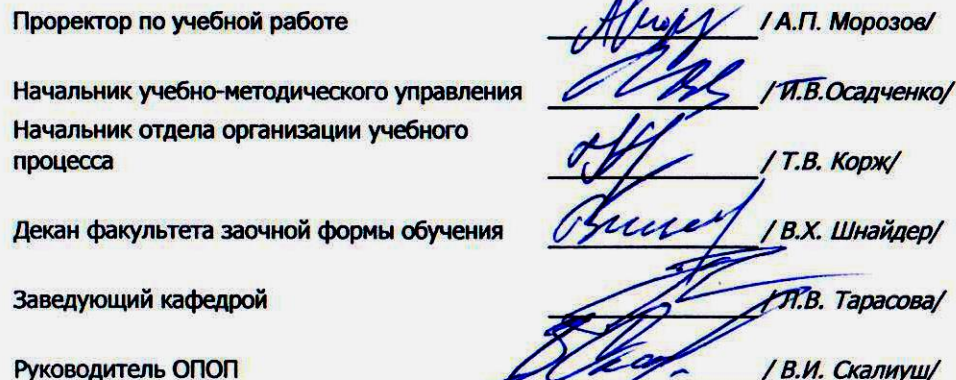 Проректор по учебной работе / А.П. Морозов/
Начальник учебно-методического управления / И.В.Осадченко/
Начальник отдела организации учебного
процесса / Т.В. Корж/
Декан факультета заочной формы обучения / В.Х. Шнайдер/
Заведующий кафедрой / Л.В. Тарасова/
Руководитель ОПОП / В.И. Скалиуш/